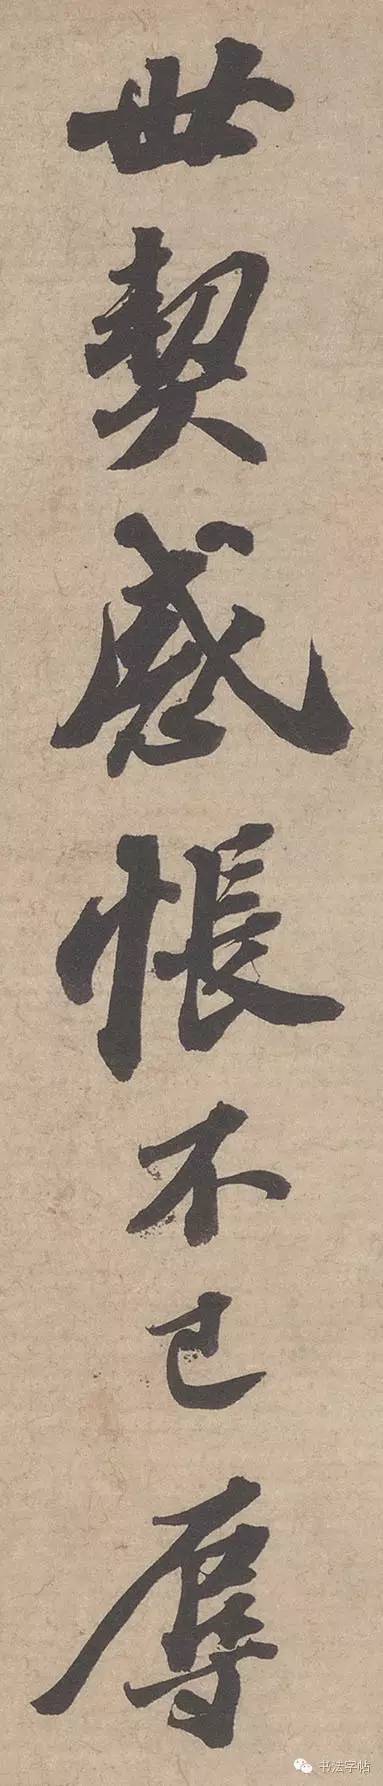 世契感悵不已辱
书法字帖